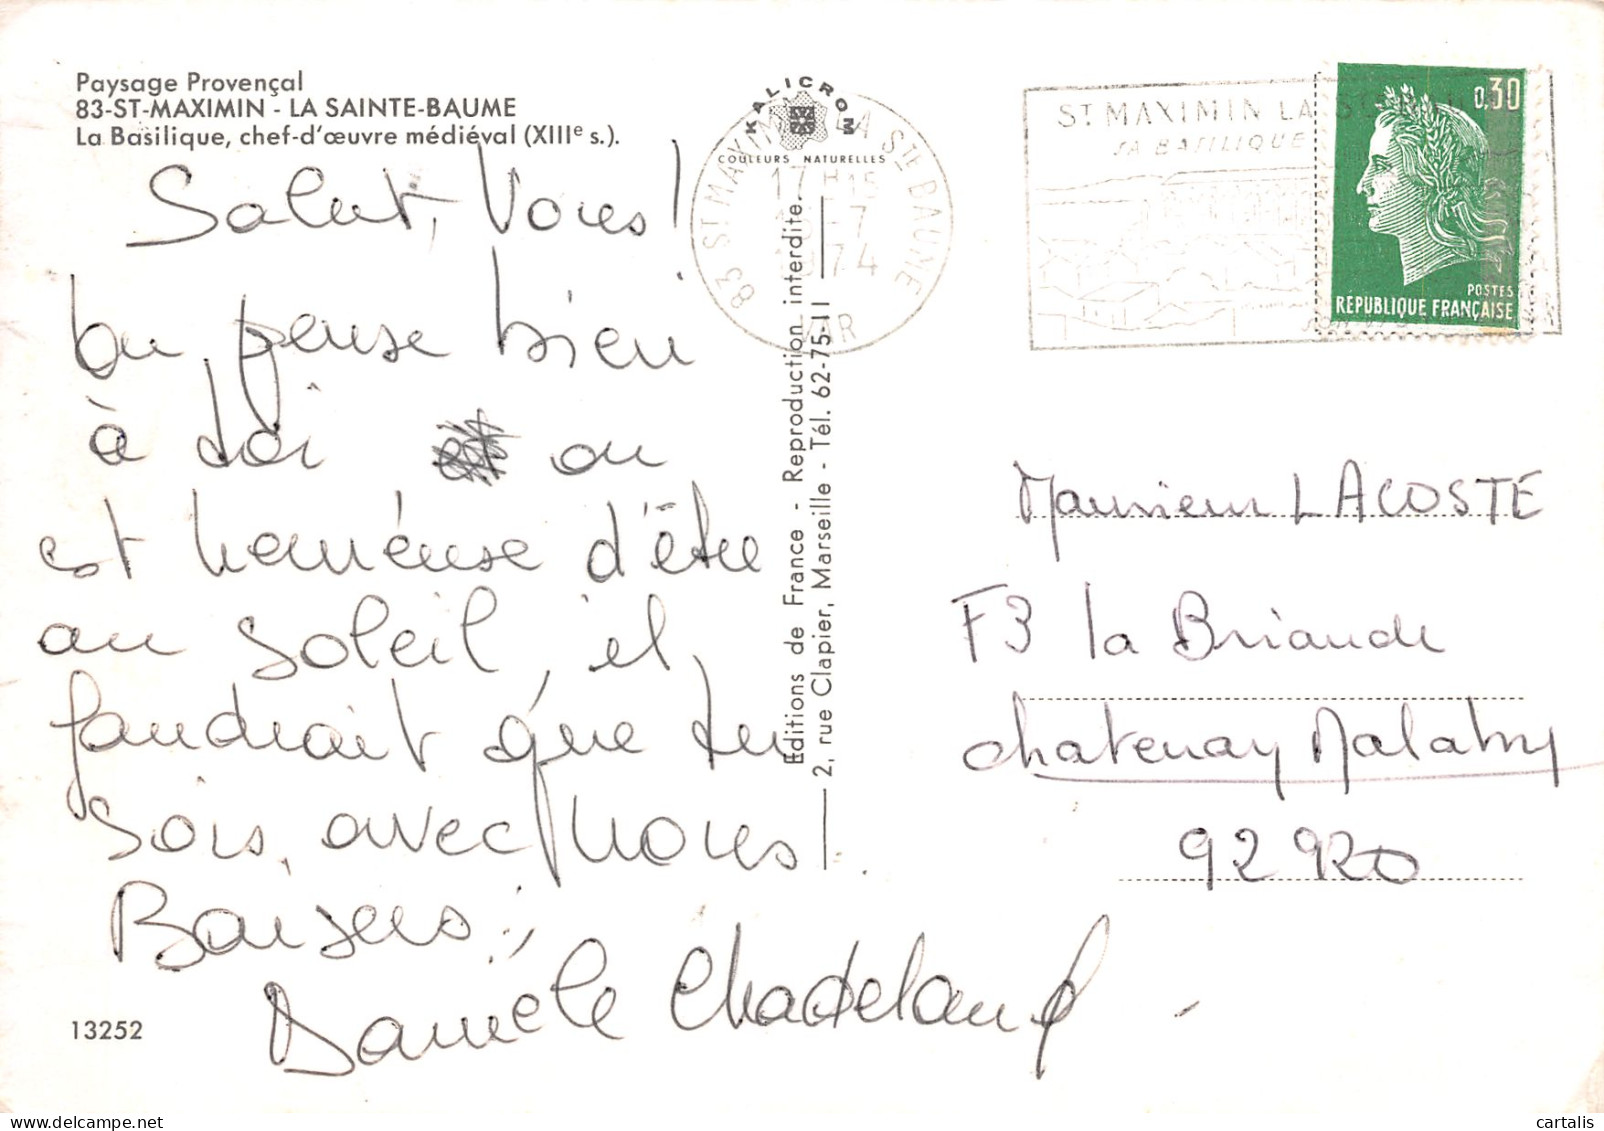 Paysage Provençal
83-ST-MAXIMIN - LA SAINTE-BAUME
La Basilique, chef-d'œuvre médiéval (XIIIe s.).
Salut, Vous!
on pense bien
à toi on
est heureuse d'être
au soleil, il
faudrait que tu
sois, avec nous!
Baisers,
Danièle
13252
KALICROM
COULEURS NATURELLES
83 ST MAXIMIN LA STE BAUME
17 H15
-7
1974
VAR
Editions de France - Reproduction interdite.
2, rue Clapier, Marseille - Tél. 62-75-11
ST MAXIMIN LA STE BAUME
SA BASILIQUE
0,30
POSTES
RÉPUBLIQUE FRANÇAISE
Monsieur LACOSTE
F3 la Briaude
Chatenay Malabry
92 920
cartalis